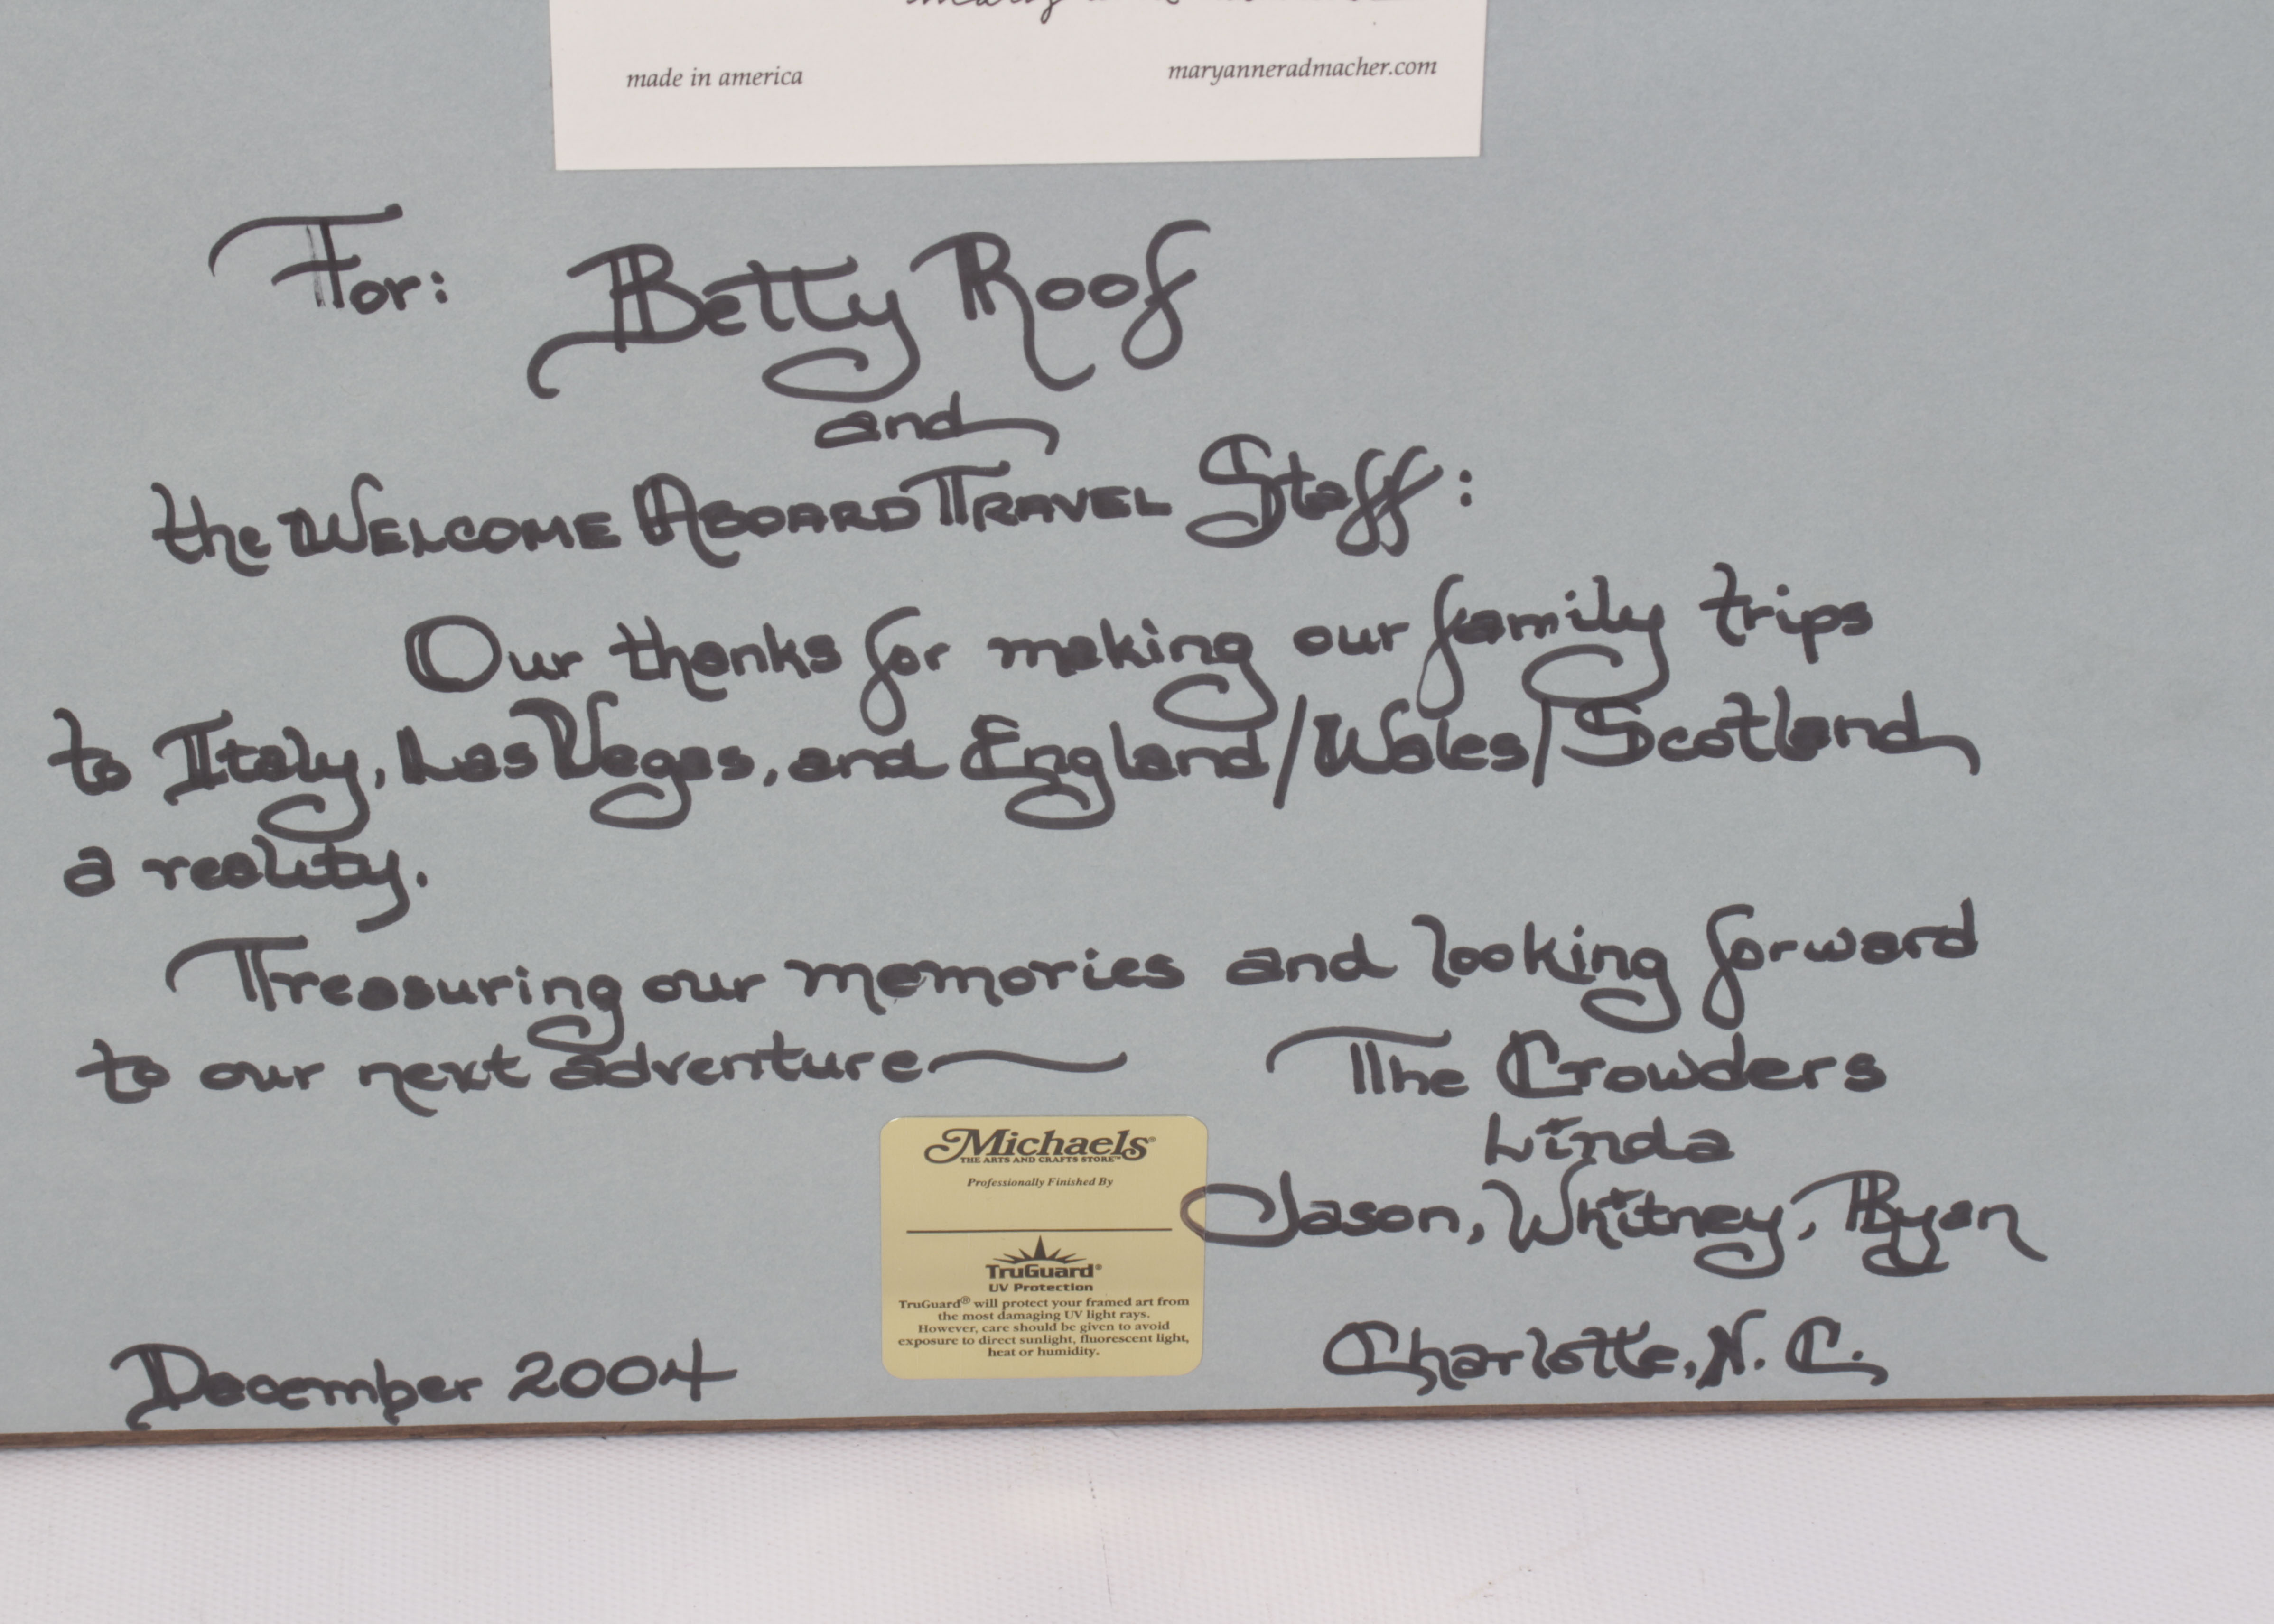 made in america maryanneradmacher.com
For: Betty Roof
and
the WELCOME ABOARD TRAVEL Staff:
Our thanks for making our family trips
to Italy, Las Vegas, and England/Wales/Scotland
a reality.
Treasuring our memories and looking forward
to our next adventure—
The Crowders
Linda
Jason, Whitney, Ryan
Charlotte, N.C.
December 2004
Michaels®
THE ARTS AND CRAFTS STORE™
Professionally Finished By
TruGuard®
UV Protection
TruGuard® will protect your framed art from
the most damaging UV light rays.
However, care should be given to avoid
exposure to direct sunlight, fluorescent light,
heat or humidity.